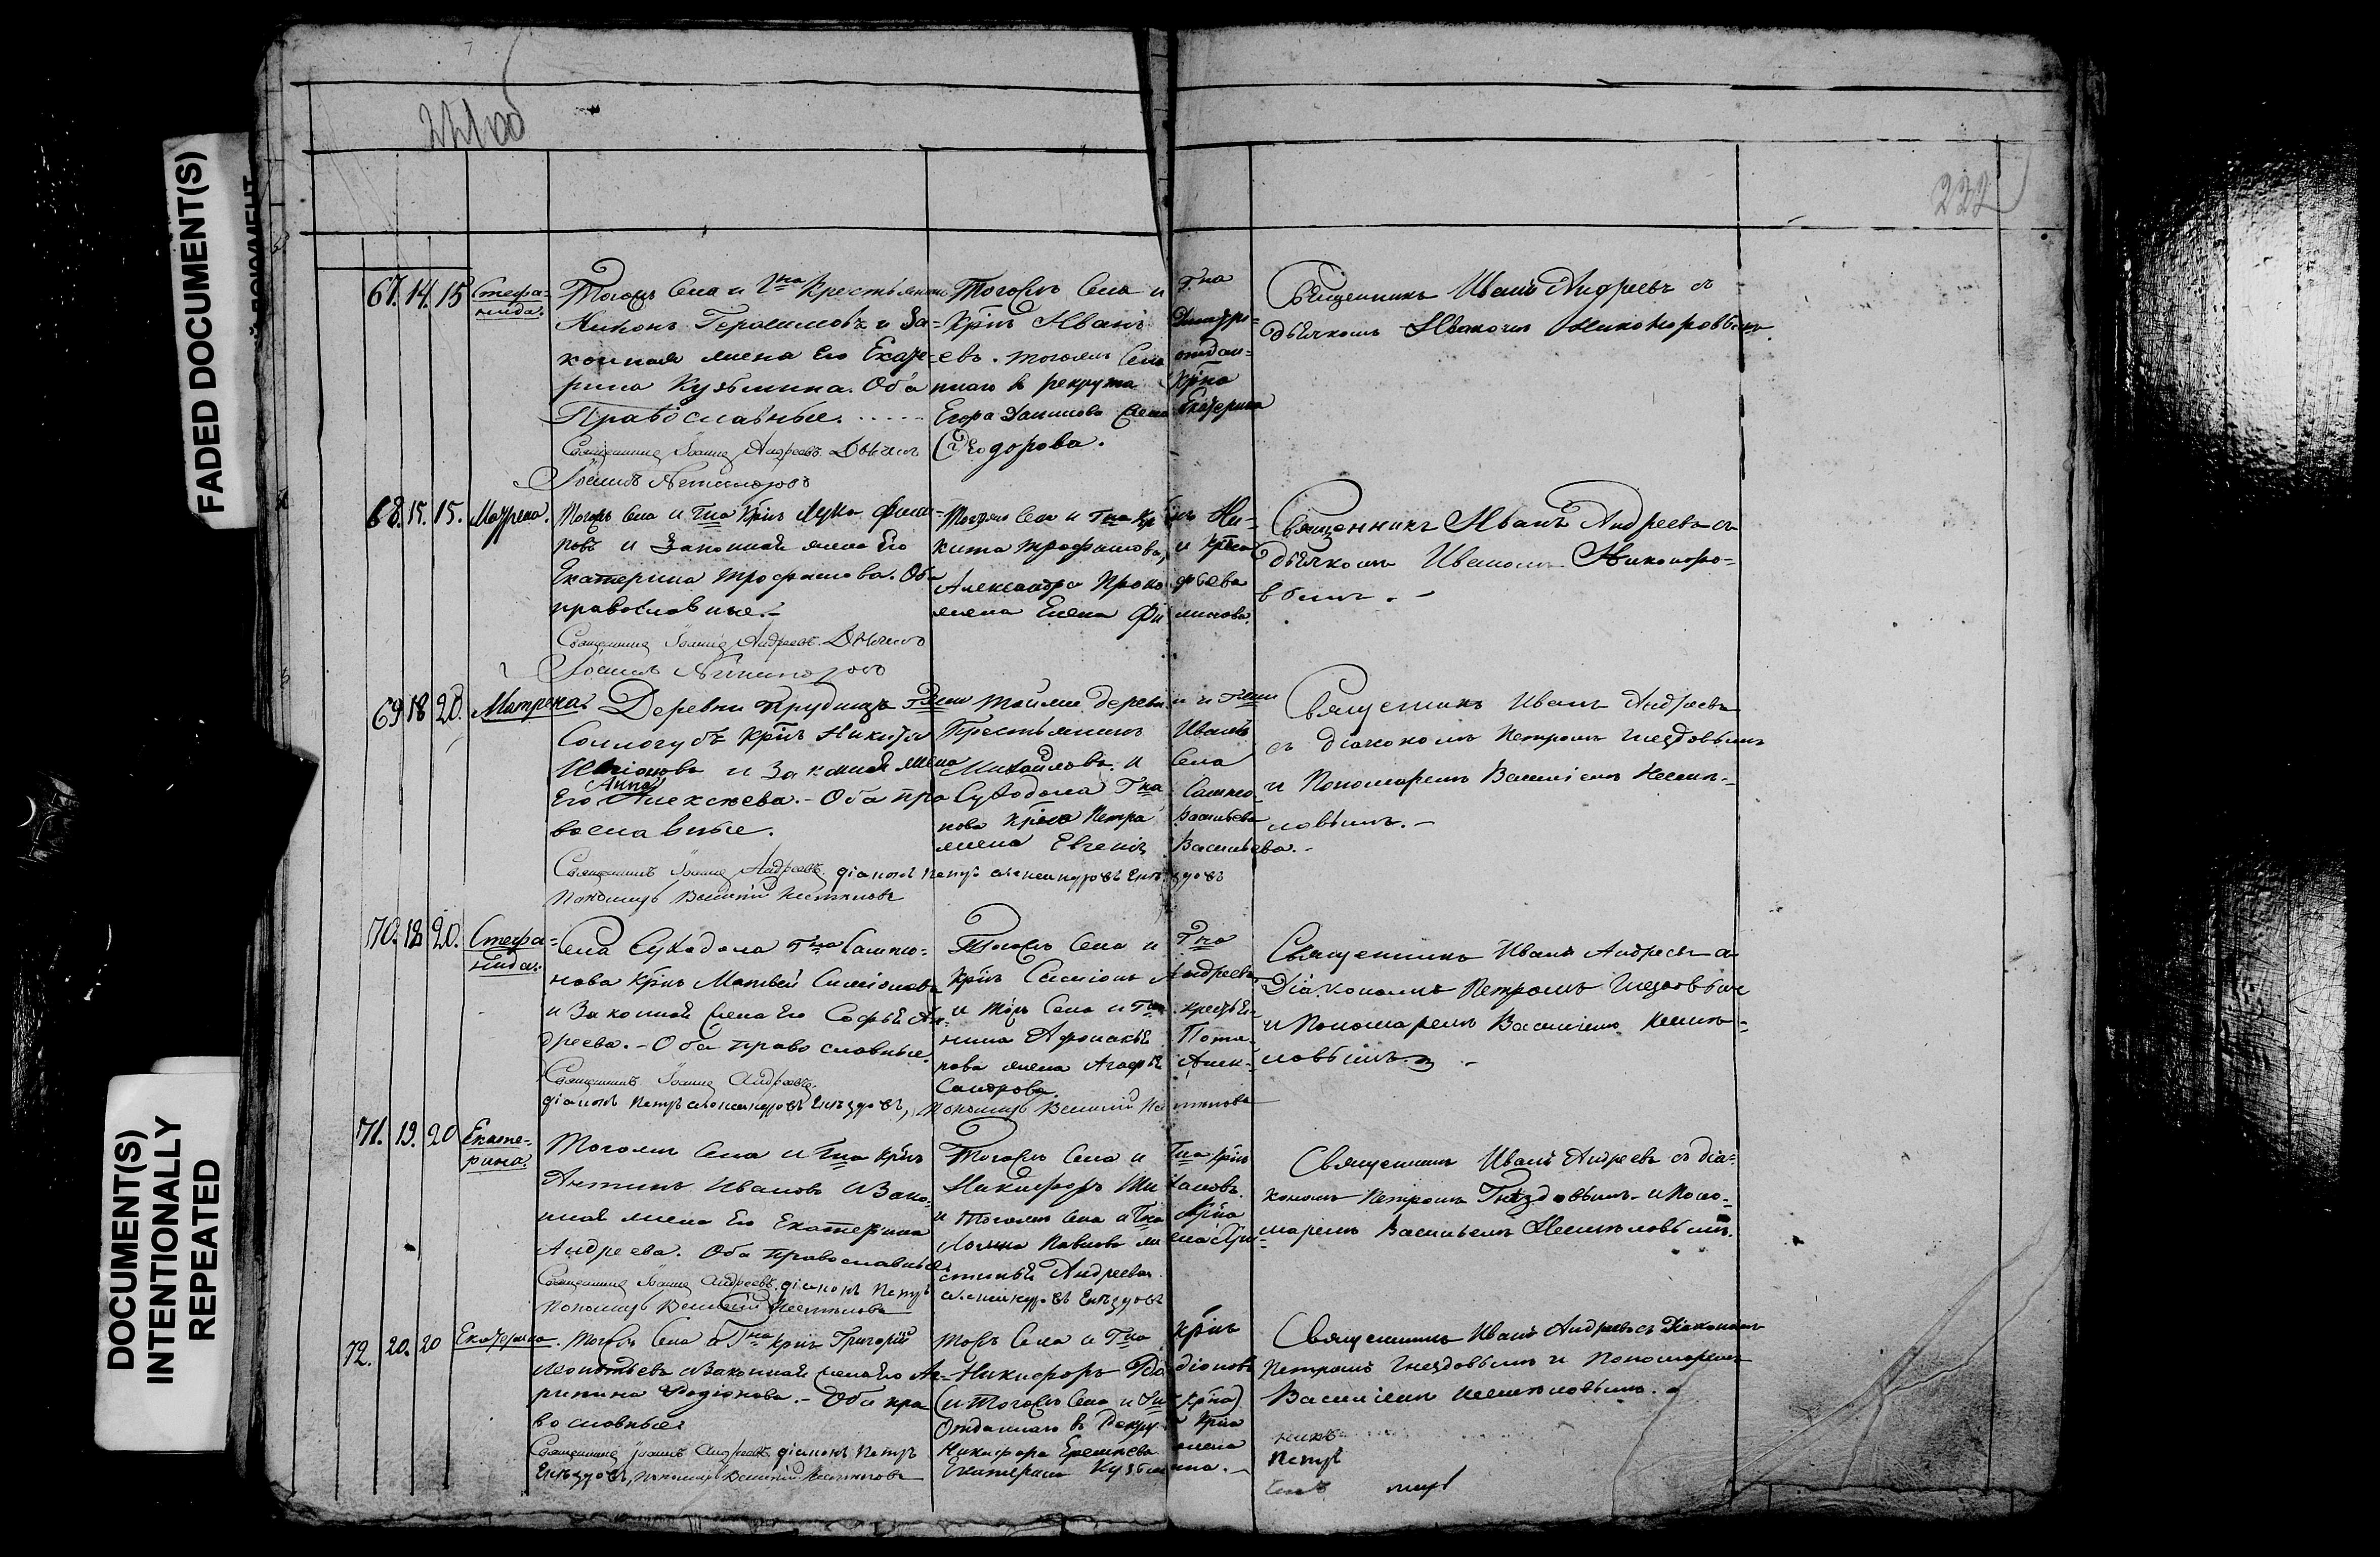 FADED DOCUMENT(S)
DOCUMENT(S)
INTENTIONALLY
REPEATED
221 об
222
67. 14. 15 Стефа-
нида.
Тогожъ Села и Гна Крестьянинъ
Никонъ Герасимовъ и За-
конная жена Его Екате-
рина Кузьмина. Оба
Православные.
Священникъ Іоаннъ Андреевъ Дьячекъ
Іоаннъ Никаноровъ
Тогожъ Села и Гна
Крнъ Иванъ Дмитри-
евъ. тогожъ Села отдан-
наго в рекрута Крна
Егора жена Екатерина
Ѳеодорова.
Священникъ Иванъ Андреевъ съ
дьячкомъ Иваномъ Никоноровымъ.
68. 15. 15. Матрена.
Тогожъ Села и Гна Крнъ Лука Фили-
повъ и Законная жена Его
Екатерина Трофимова. Оба
православные.
Священникъ Іоаннъ Андреевъ Дьячекъ
Іоаннъ Никаноровъ
Тогожъ Села и Гна Крнъ Ни-
кита Трофимовъ, и Крна
Александра Прокофьева
жена Елена Филипова.
Священникъ Иванъ Андреевъ съ
дьячкомъ Иваномъ Никоноро-
вымъ.
69 18 20. Матрена.
Деревни Прудищъ Гжи
Сологубъ Крнъ Никита
и Законная жена
Его Анна Алексеева. - Оба пра
вославные.
Священникъ Іоаннъ Андреевъ діаконъ Петръ Александровъ Гнѣздовъ
Пономарь Василій
Тойже деревни и Гжи
Крестьянинъ Иванъ
Михайловъ. и Села
Суходола Гна Сампсо-
нова Крна Петра Васильева
жена Евгенія Васильева.
Священникъ Иванъ Андреевъ
съ діакономъ Петромъ Гнездовымъ
и Пономаремъ Василіемъ
ловымъ.
70. 18 20. Стефа-
нида.
Села Суходола Гна Сампсо-
нова Крнъ Матвей Симіоновъ
и Законная жена Его Софья Ан-
дреева. - Оба православные.
Священникъ Іоаннъ Андреевъ
діаконъ Петръ Александровъ Гнѣздовъ, Пономарь Василій
Тогожъ Села и Гна
Крнъ Симіонъ Андреевъ
и тогожъ Села и Гна крестья-
нина Афанасья Пота-
пова жена Агафья Алек-
сандрова.
Священникъ Иванъ Андреевъ съ
Діакономъ Петромъ Гнездовымъ
и Пономаремъ Василіемъ
ловымъ.
71. 19. 20 Екате-
рина.
Тогожъ Села и Гна Крнъ
Антипъ Ивановъ и Зако-
нная жена Его Екатерина
Андреева. Оба православные
Священникъ Іоаннъ Андреевъ діаконъ Петръ
Александровъ Гнѣздовъ
Пономарь Василій
Тогожъ Села и Гна Крнъ
Никифоръ
и Тогожъ Села и Гна Крна
Павлова жена Хри-
стинья Андреева
Священникъ Иванъ Андреевъ съ діа-
кономъ Петромъ Гнездовымъ и Поно-
маремъ Васильемъ
72. 20. 20 Екатерина.
Тогожъ Села и Гна Крнъ Григорій
Леонтьевъ и Законная жена Его Аг-
рипина Родіонова. - Оба пра
вославные
Священникъ Іоаннъ Андреевъ діаконъ Петръ
Гнѣздовъ, Пономарь Василій
Тогожъ Села и Гна Крнъ
Никифоръ Родіоновъ
(и Тогожъ Села и Гна Крна)
Отданнаго в Рекруты Крна
Никифора жена
Екатерина Кузьмина.
Священникъ Иванъ Андреевъ съ Діакономъ
Петромъ Гнездовымъ и Пономаремъ
Василіемъ
Петръ